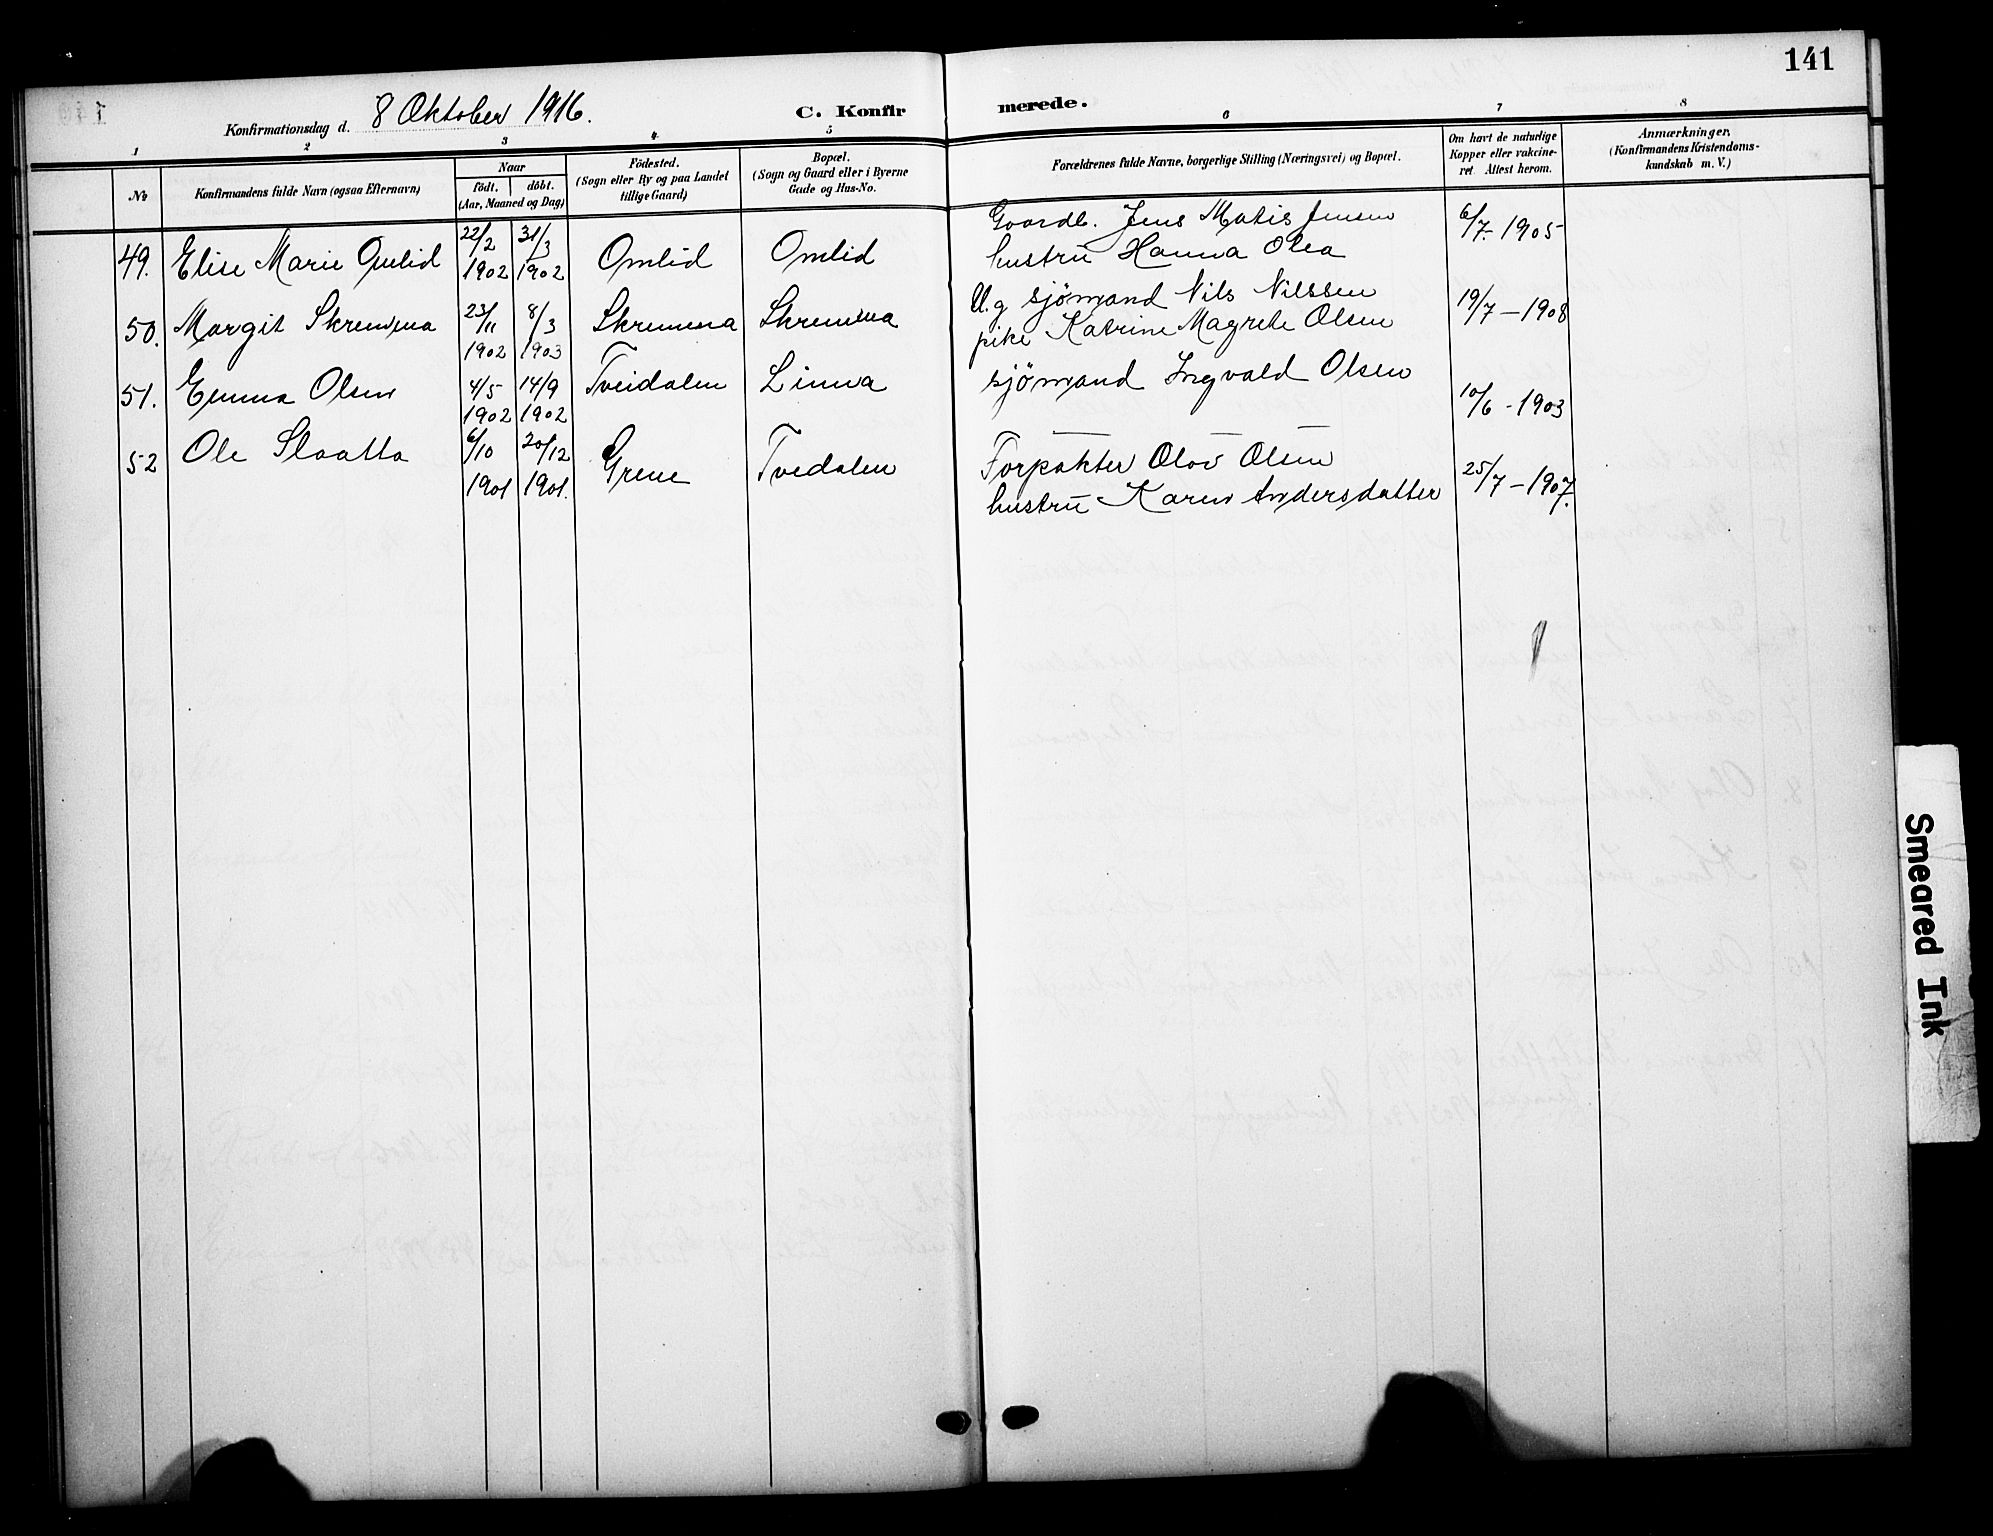 141
Konfirmationsdag d. 8 Oktober 1916. C. Konfir
merede.
1 2 3 4 5 6 7 8
No
Konfirmandens fulde Navn (ogsaa Efternavn)
Naar
födt. döbt.
(Aar, Maaned og Dag)
Födested.
(Sogn eller By og paa Landet
tillige Gaard)
Bopæl.
(Sogn og Gaard eller i Byerne
Gade og Hus-No.
Forældrenes fulde Navne, borgerlige Stilling (Næringsvei) og Bopæl.
Om havt de naturlige
Kopper eller vakcine-
ret. Attest herom.
Anmærkninger.
(Konfirmandens Kristendoms-
kundskab m. V.)
49. Elise Marie Omlid 22/2 1902 31/3 1902 Omlid Omlid Gaardb. Jens Matis Jensen 6/7- 1905
hustru Hanna Olea
50. Margit Skrenma 23/11 1902 8/3 1903 U.g sjömand Nils Nilssen 19/7 - 1908
pike Katrine Magrete Olsen
51. Emma Olsen 4/5 1902 14/9 1902 Tveidalen Linna sjömand Ingvald Olsen 10/6 - 1903
52 Ole Slaatta 6/10 1901 20/12 1901. Grene Tvedalen Forpakter Olav Olsen 25/7 - 1907.
hustru Karen Andersdatter
Smeared Ink